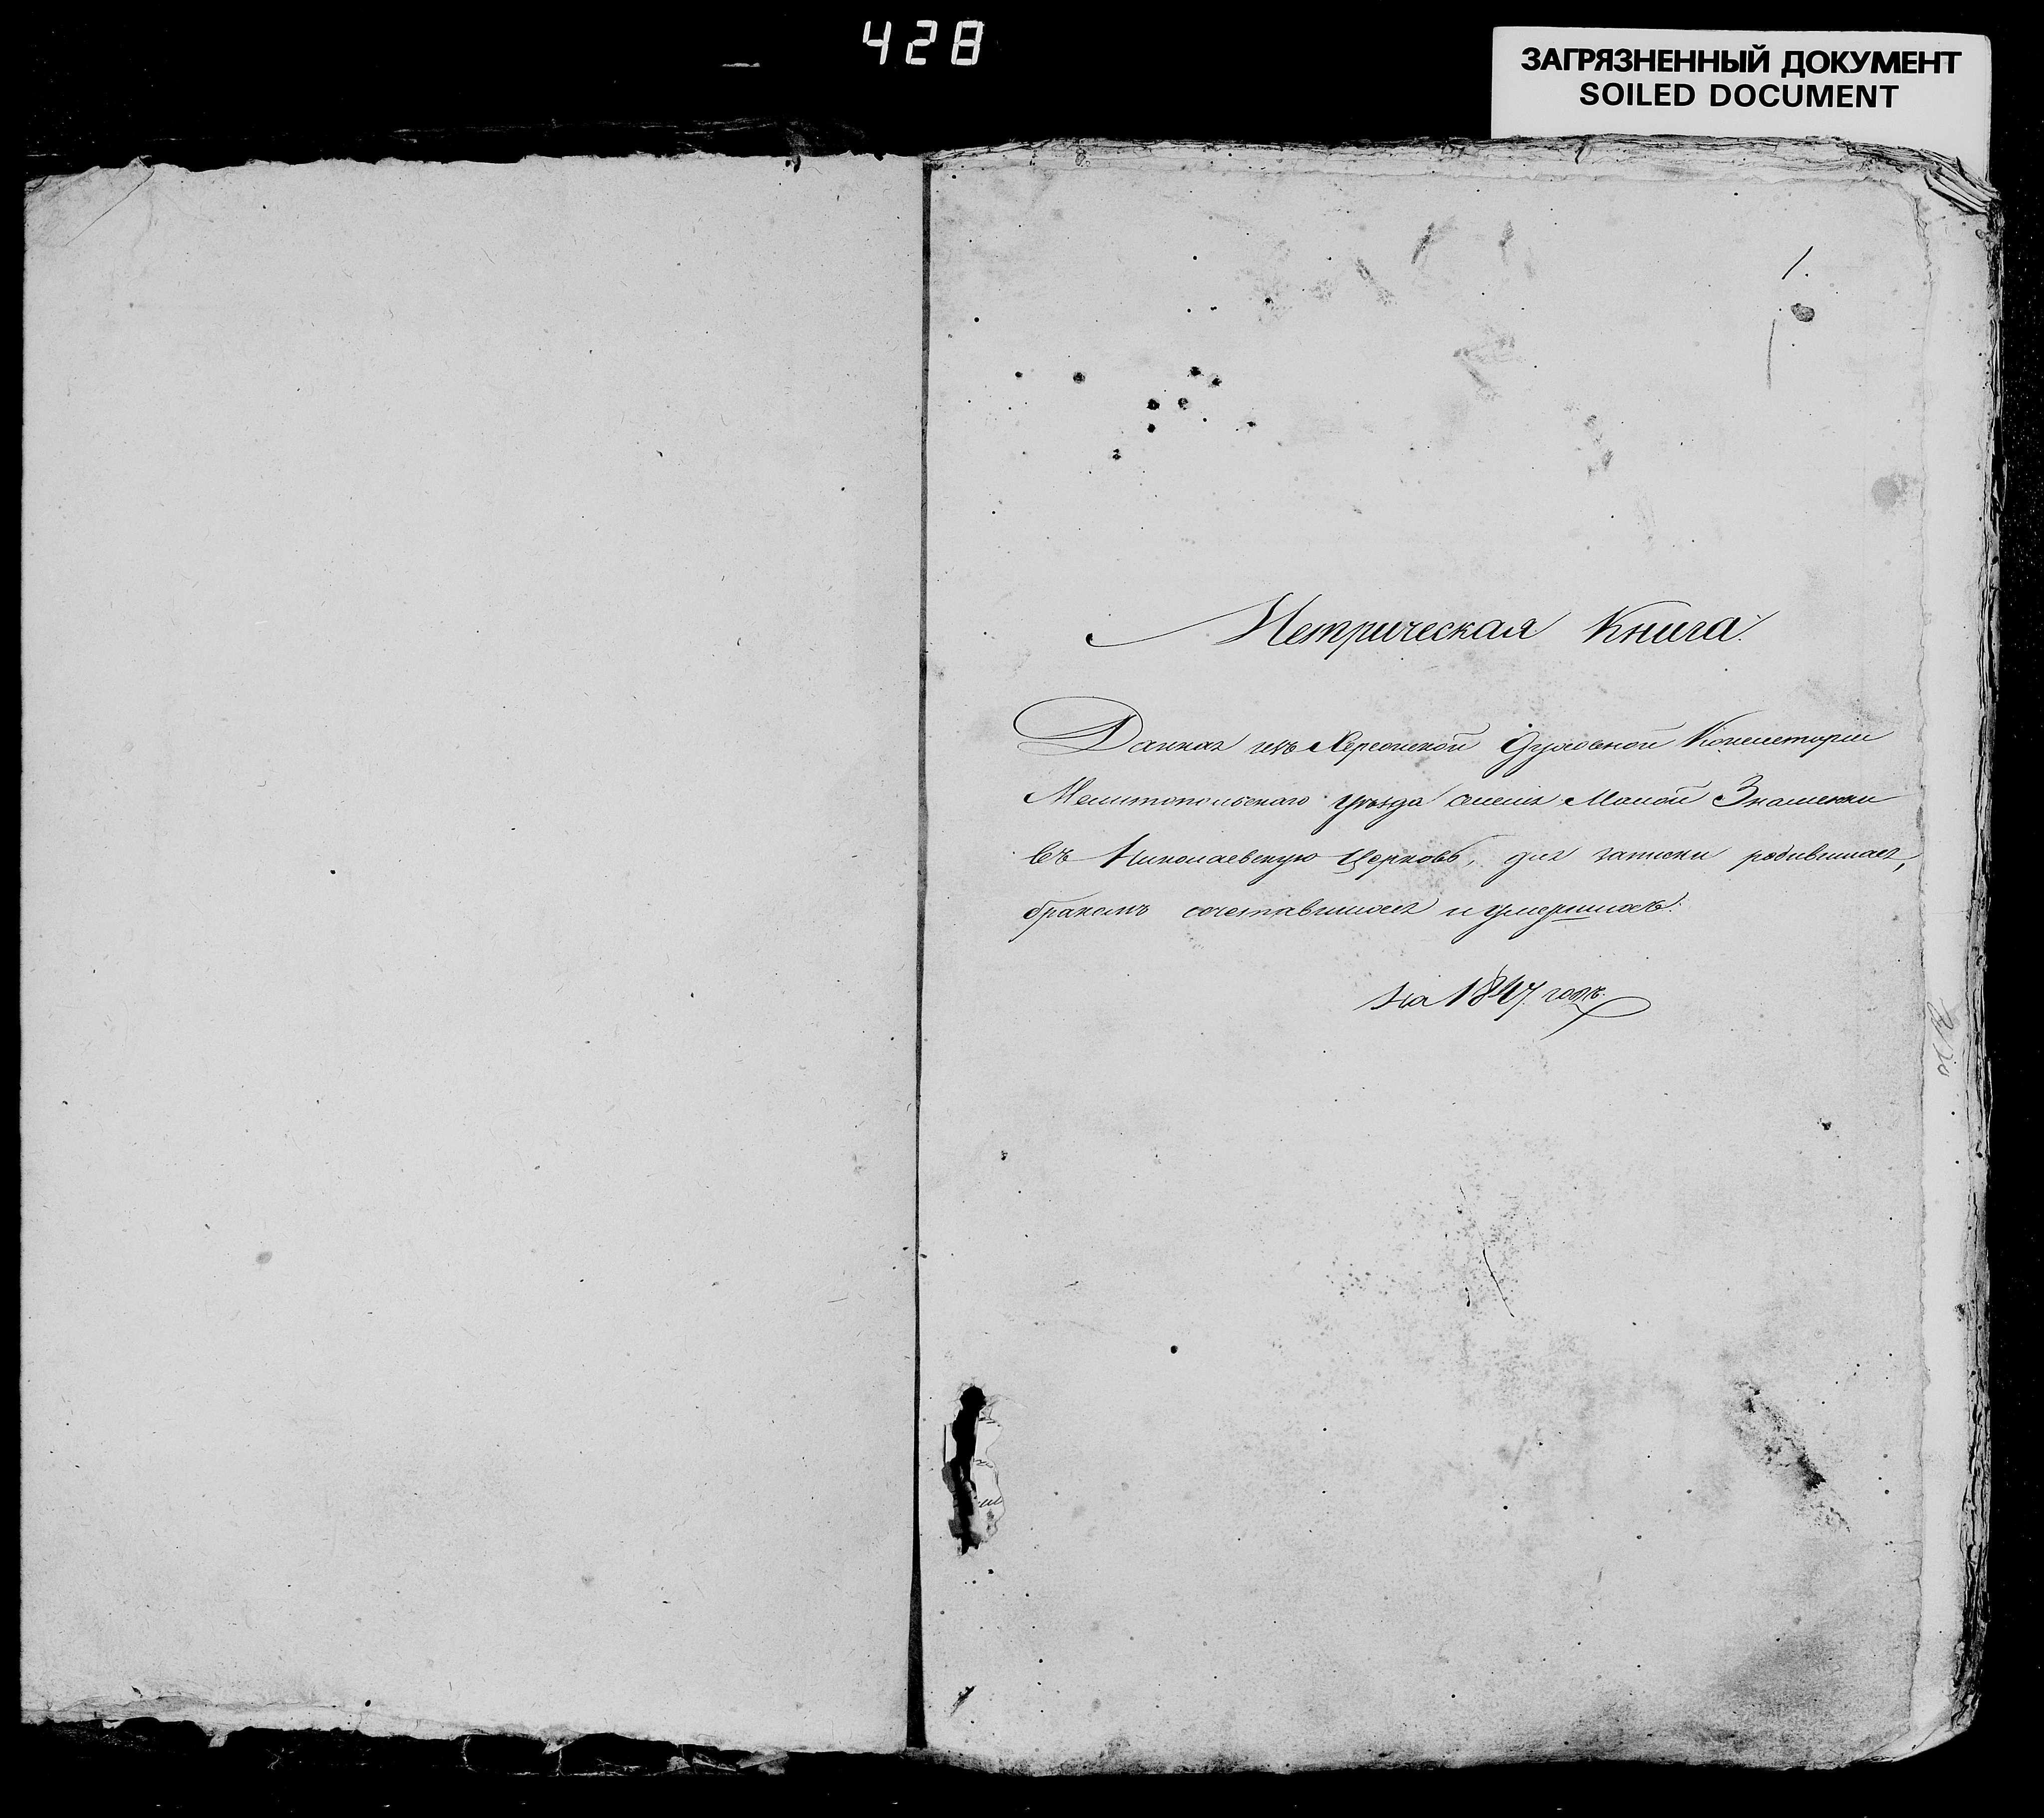 428
ЗАГРЯЗНЕННЫЙ ДОКУМЕНТ
SOILED DOCUMENT
1.
Метрическая Книга.
Данная изъ Херсонской Духовной Консисторіи
Мелитопольскаго уѣзда селенія Малой Знаменки
въ Николаевскую Церковь, для записки родившихся,
бракомъ сочетавшихся и умершихъ.
на 1847. годъ.